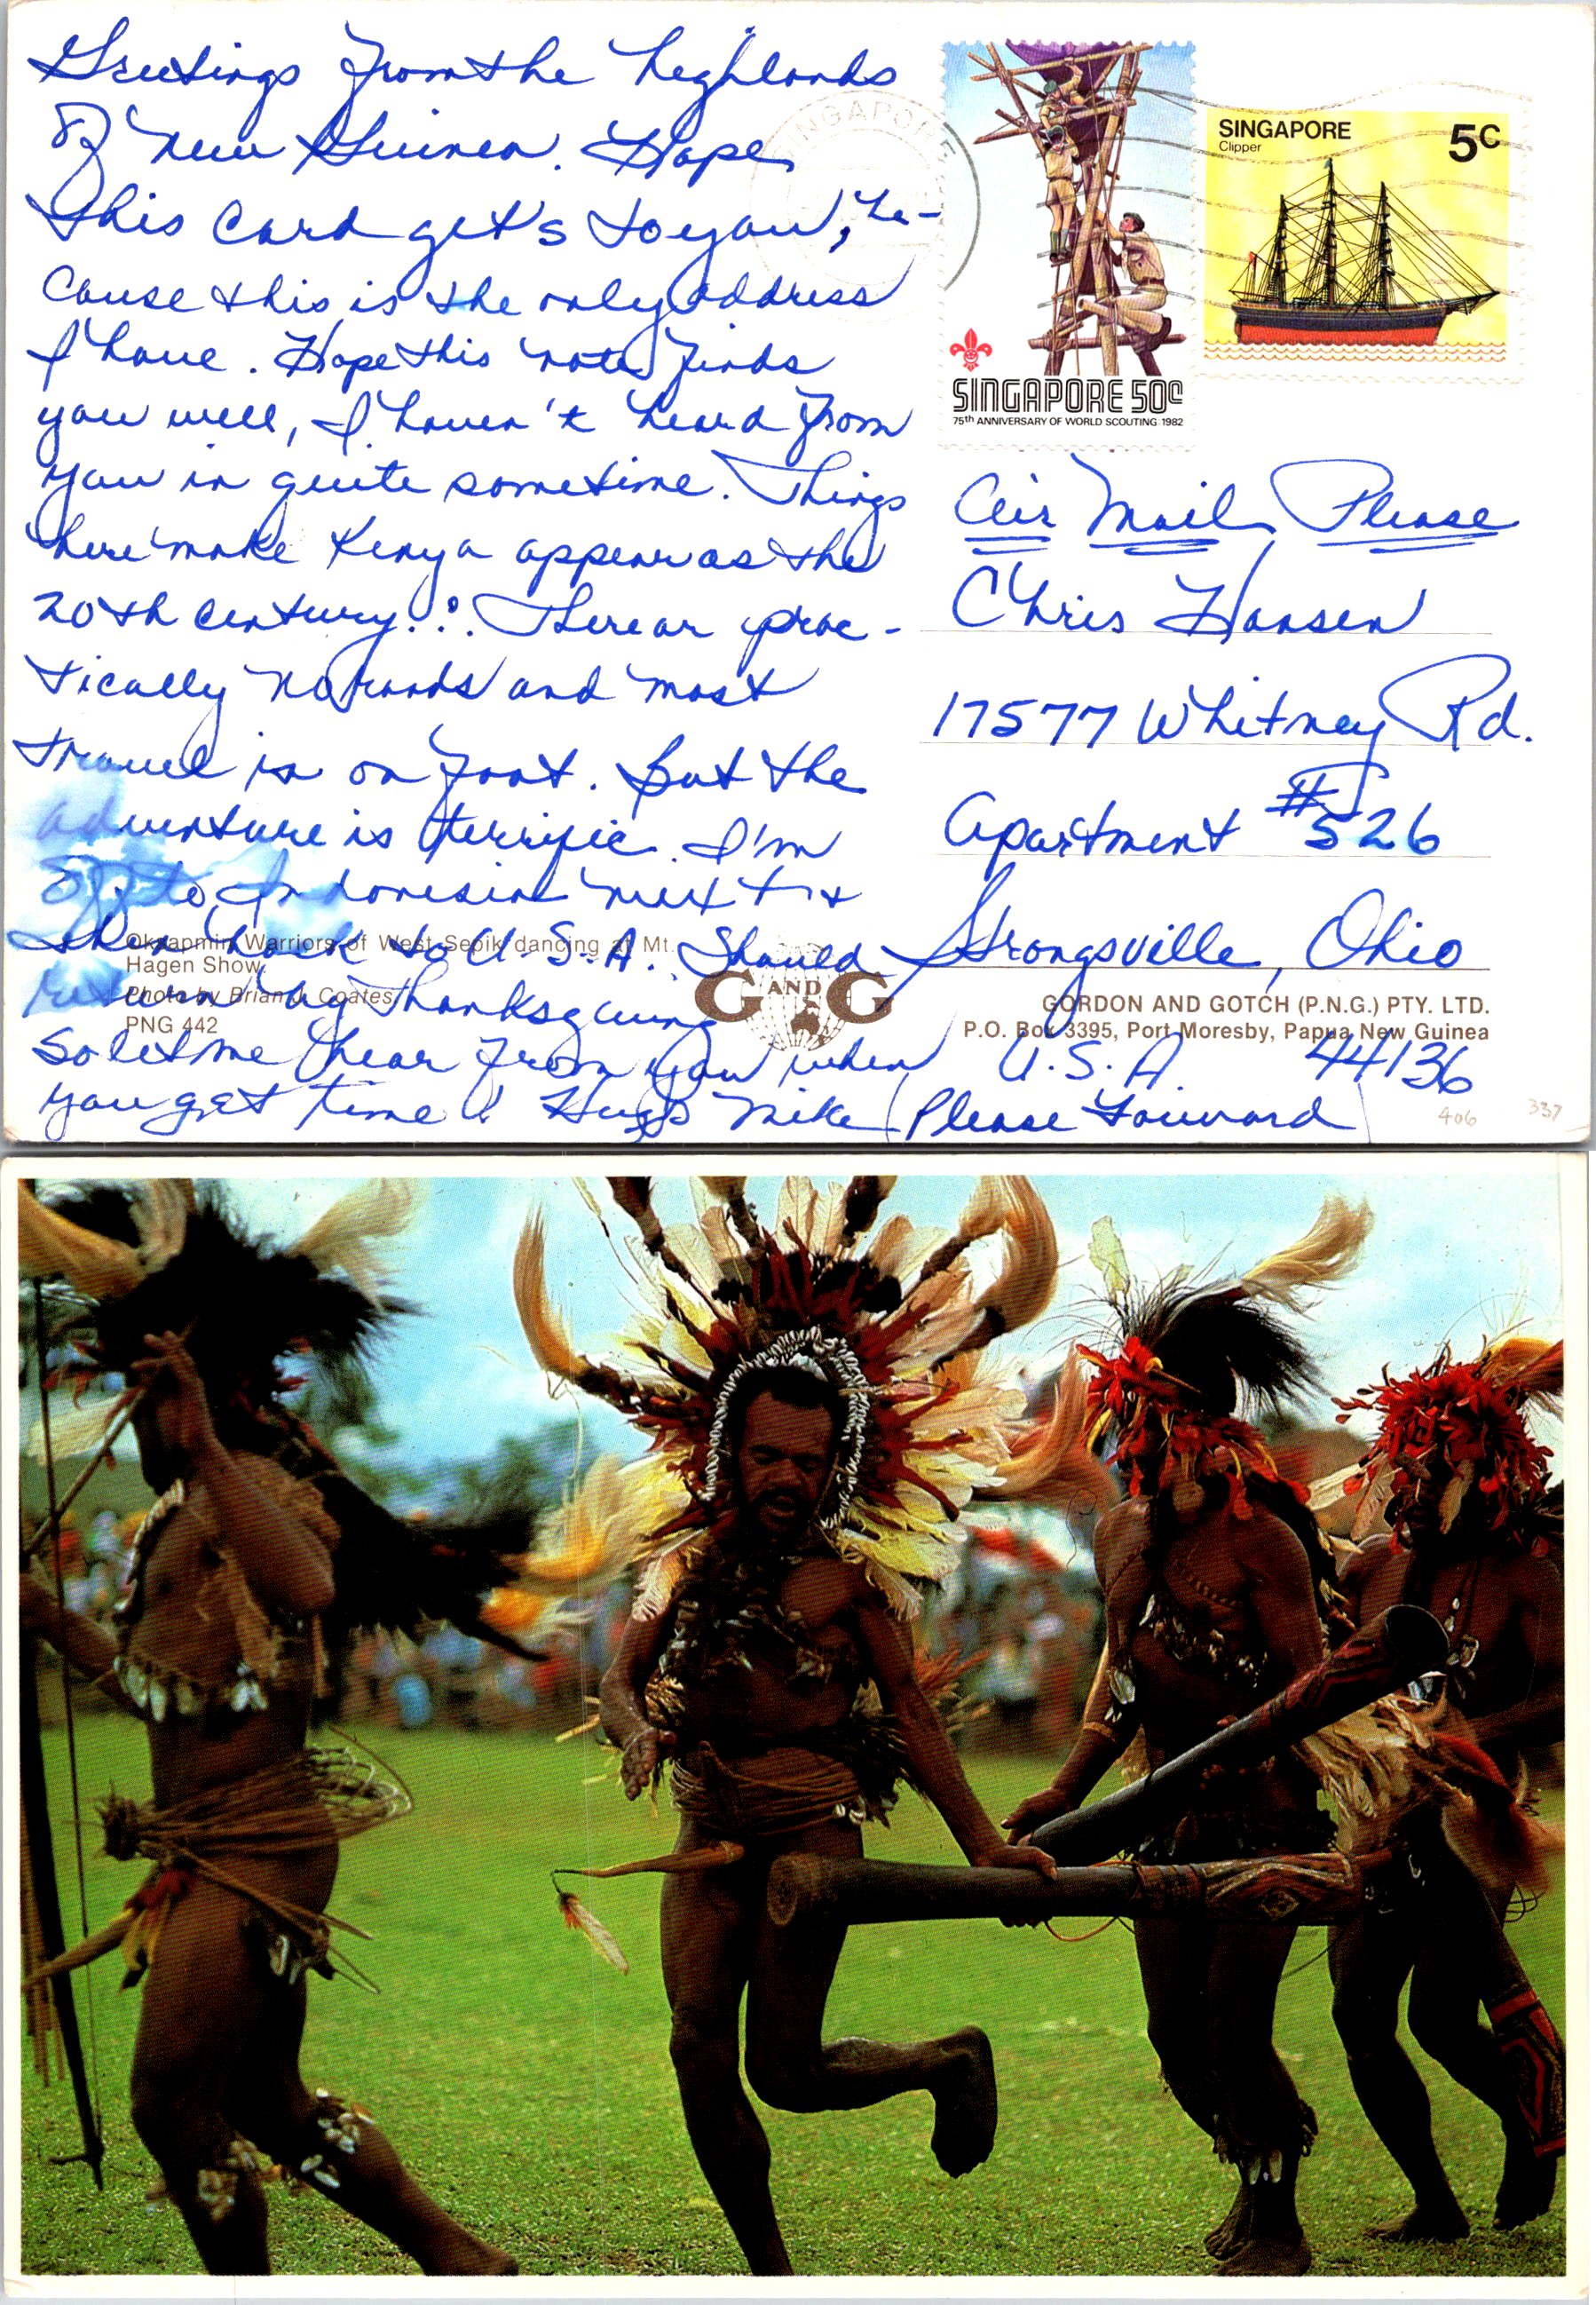 Greetings from the highlands
of New Guinea. Hope
this card get's to you, be-
cause this is the only address
I have. Hope this note finds
you well, I haven't heard from
you in quite sometime. Things
here make Kenya appear as the
20th century!. There are prac-
tically no roads and most
travel is on foot. But the
adventure is terrific. I'm
off to Indonesia next &
then back to U.S.A. Should
return by Thanksgiving
so let me hear from you when
you get time! Hugs Mike (Please Forward)
SINGAPORE
SINGAPORE 50c
75th ANNIVERSARY OF WORLD SCOUTING 1982
SINGAPORE 5c
Clipper
Air Mail Please
Chris Hansen
17577 Whitney Rd.
Apartment #526
Strongsville, Ohio
U.S.A. 44136
Oksapmin Warriors of West Sepik dancing at Mt.
Hagen Show.
Photo by Brian J. Coates
PNG 442
G AND G
GORDON AND GOTCH (P.N.G.) PTY. LTD.
P.O. Box 3395, Port Moresby, Papua New Guinea
406 337